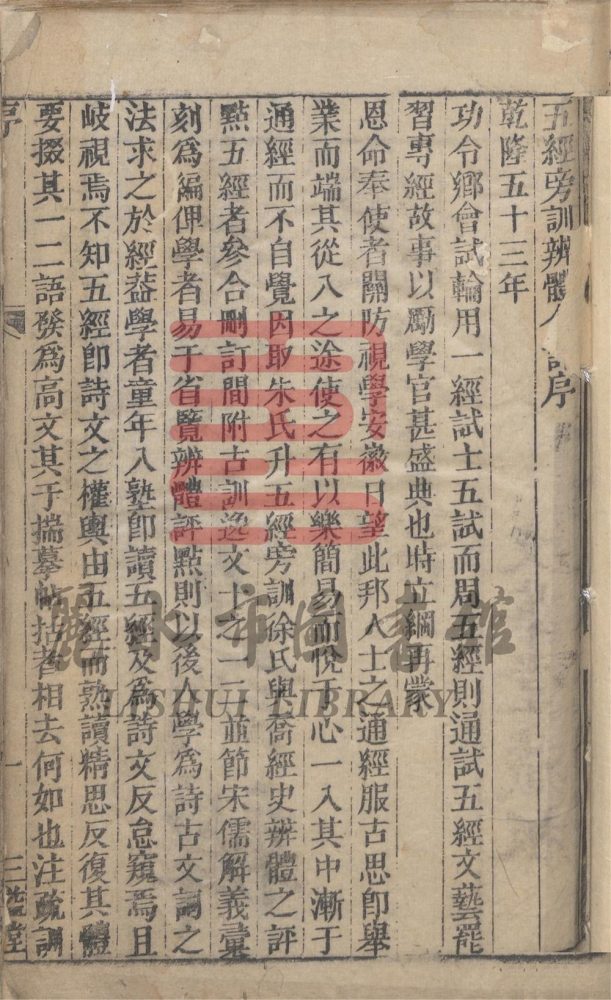 五經旁訓辨體合訂序
乾隆五十三年
功令鄉會試輪用一經試士五試而周五經則通試五經文藝罷
習專經故事以勵學官甚盛典也時立綱再蒙
恩命奉使者關防視學安徽日望此邦人士之通經服古思卽舉
業而端其從入之途使之有以樂簡易而悅于心一入其中漸于
通經而不自覺因取朱氏升五經旁訓徐氏與喬經史辨體之評
點五經者參合刪訂間附古訓逸文十之一二並節宋儒解義彙
刻爲編俾學者易于省覽辨體評點則以後人學爲詩古文詞之
法求之於經葢學者童年入塾卽讀五經及爲詩文反怠窺焉且
岐視焉不知五經卽詩文之權輿由五經而熟讀精思反復其體
要掇其一二語發爲高文其于揣摹帖括者相去何如也注疏訓
序
一
三益堂
麗水市圖書館
LISHUI LIBRARY